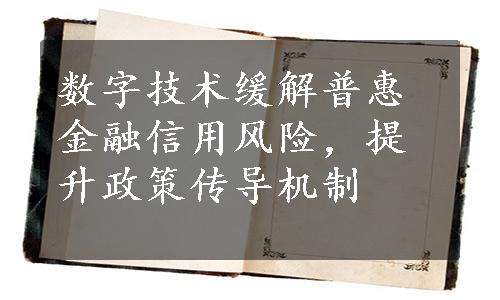 数字技术缓解普惠
金融信用风险，提
升政策传导机制